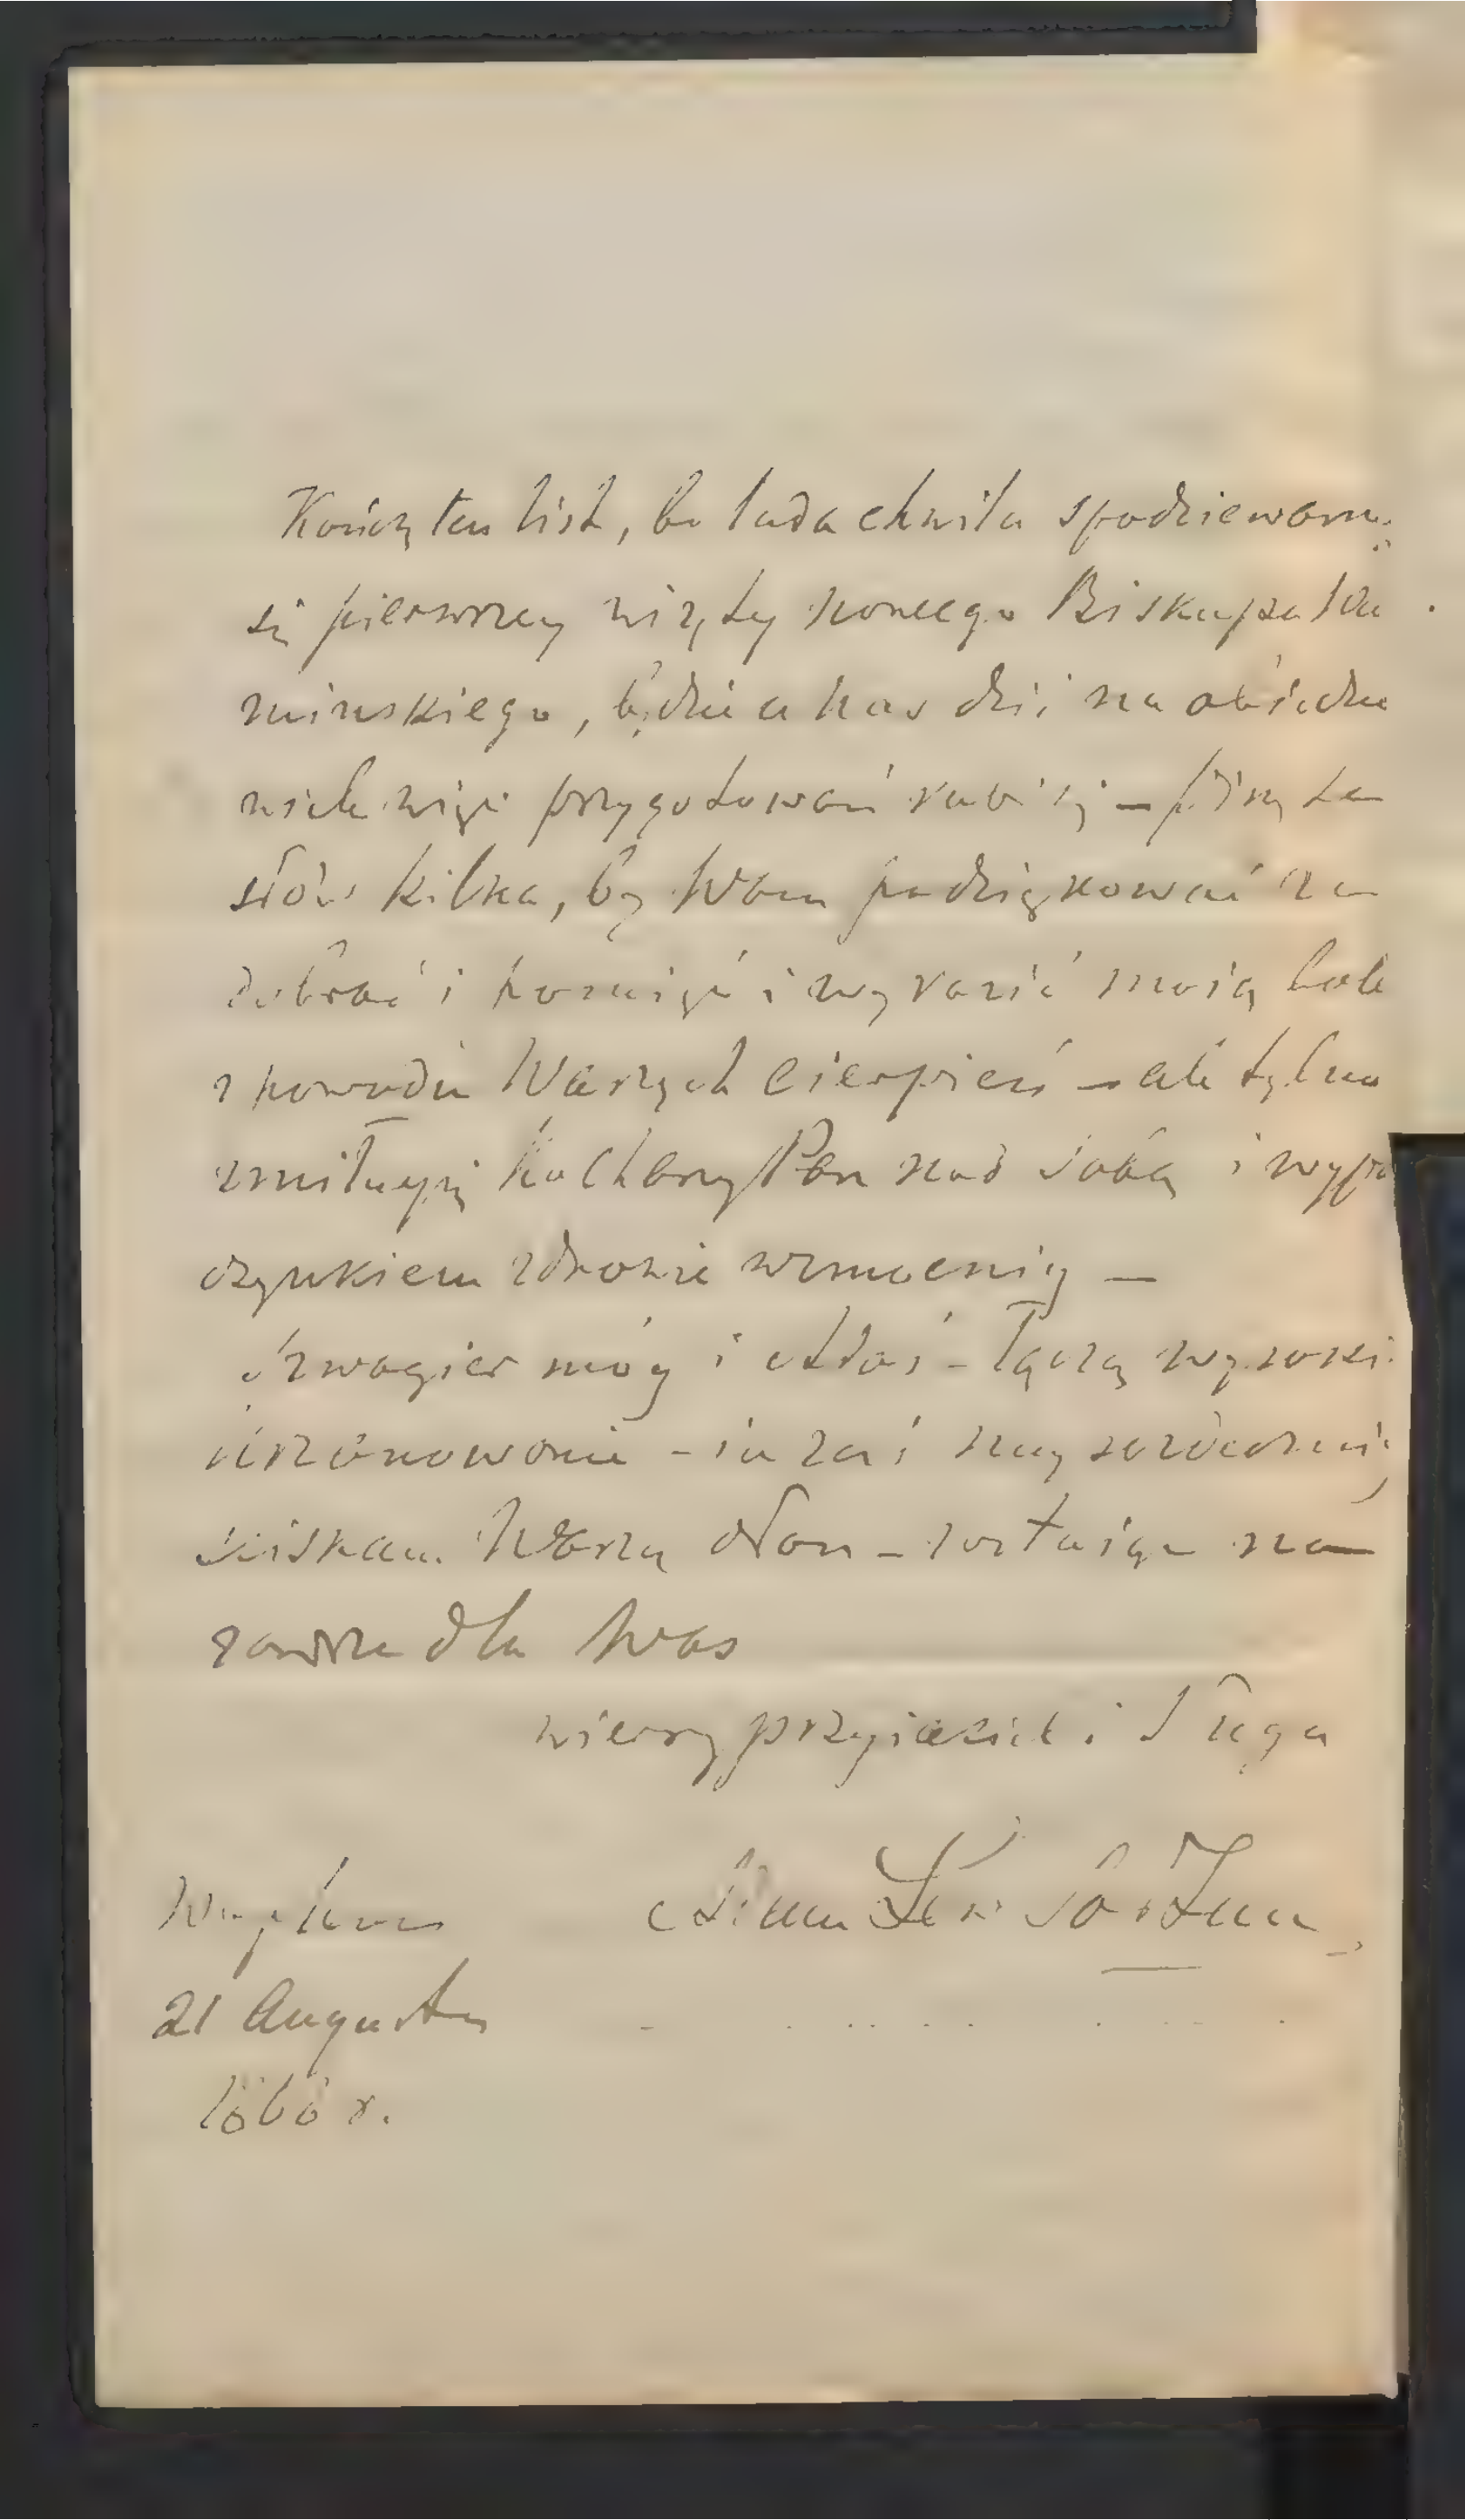 Kończę ten list, bo lada chwila spodziewamy
się pierwszey wizyty nowego Biskupa Ka
mińskiego, będzie u nas dziś na obiedzie
wiele więc przygotowań robi się – piszę te
słów kilka, by Wam podziękować za
dobroć i pamięć i wyrazić moią boleść
z powodu Waszych cierpień – ale tylko
zmiłuyię kochany Pan nad sobą i wypo
czynkiem zdrowie wzmocniy –
Szwagier móy i łączą wysoki
uszanowanie – ia zaś nayserdeczniéy
ściskam Waszą dłoń – zostaiąc na
zawsze dla Was
wierny przyiaciel i Sługa
21 Augusta
1860 r.